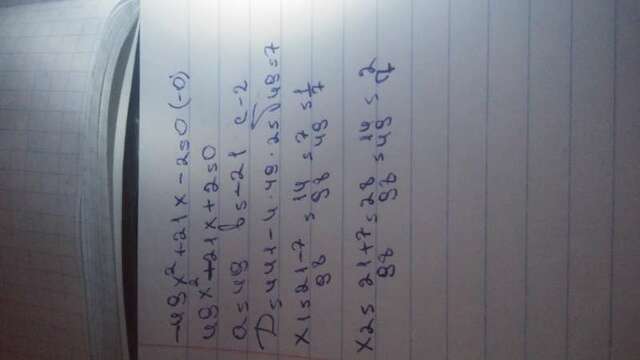 -49x² + 21x - 2 = 0 (-0)
49x² - 21x + 2 = 0
a = 49 b = -21 c - 2
D = 441 - 4 · 49 · 2 = √49 = 7
x1 = 21-7/98 = 14/98 = 7/49 = 1/7
x2 = 21+7/98 = 28/98 = 14/49 = 2/7